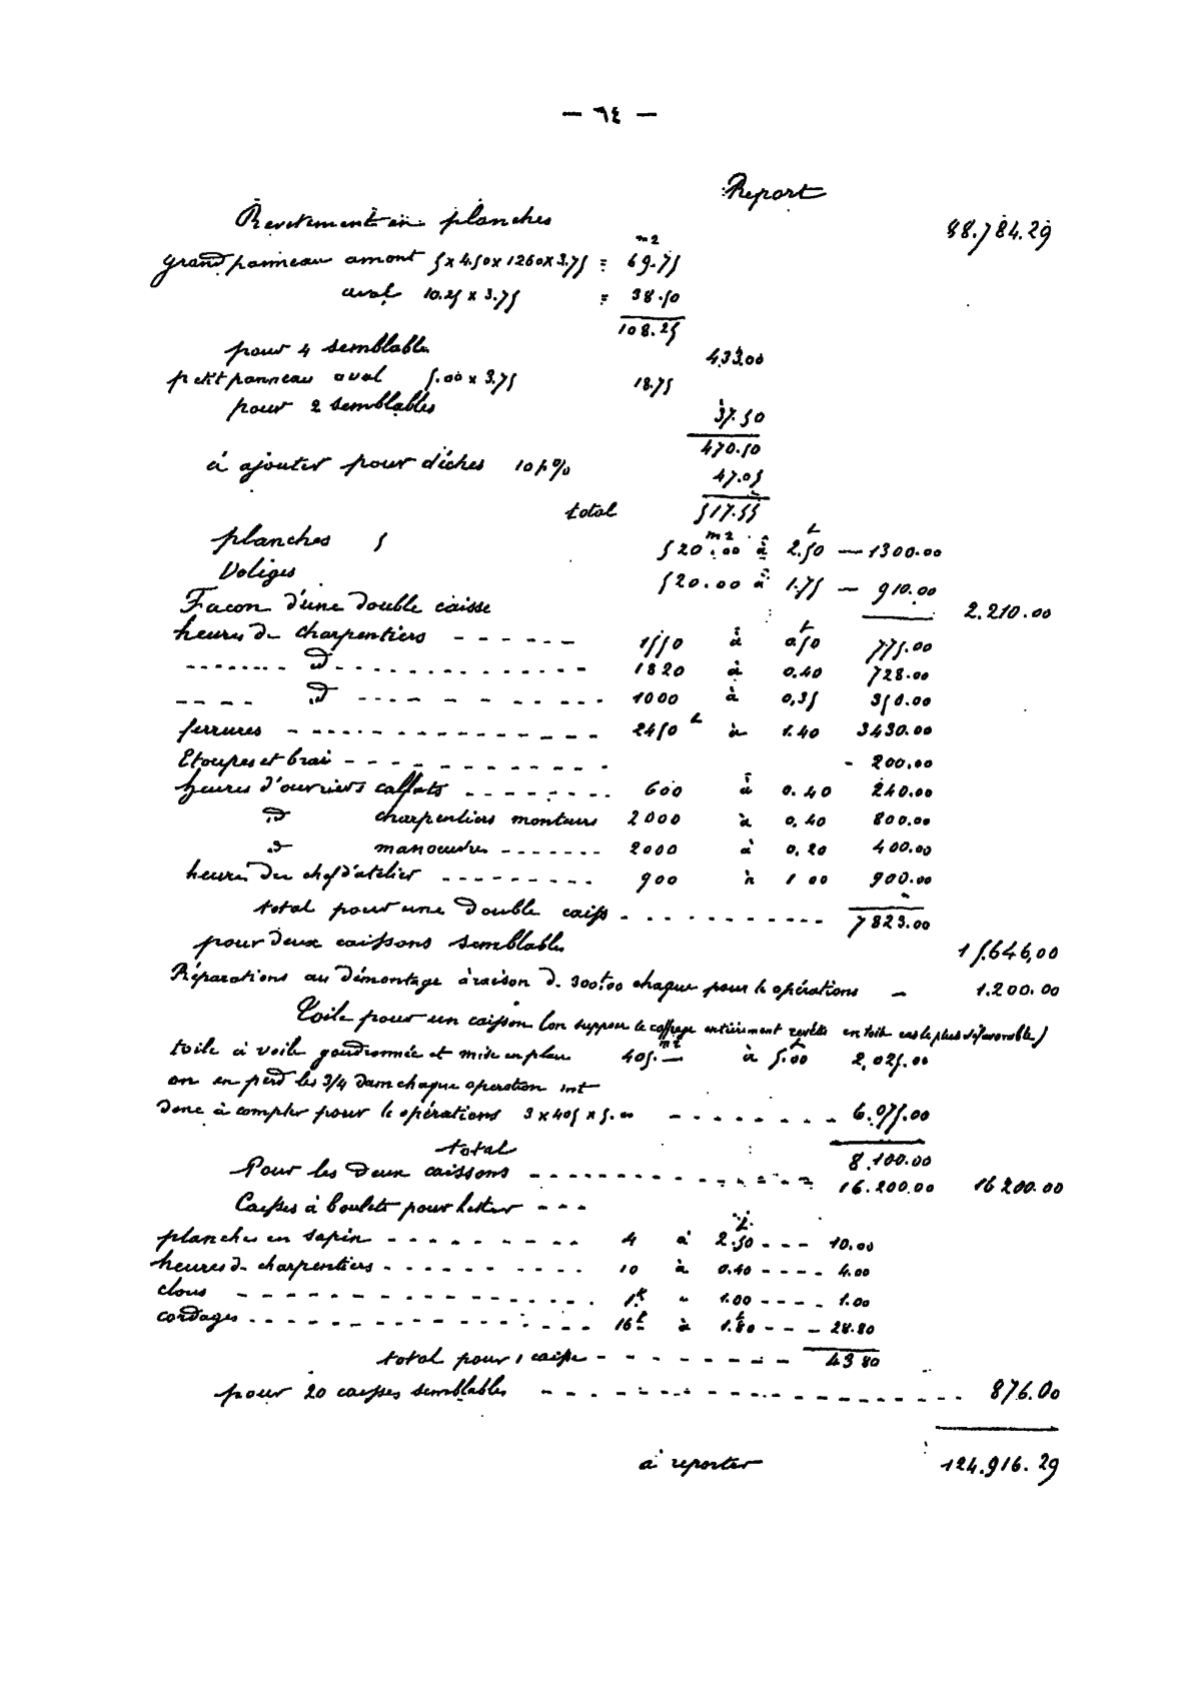 — ٦٤ —
Report
Revetement en planches 88.784.29
m2
grand panneau amont 5 x 4.50 x 1260 x 3.75 = 69.75
aval 10.25 x 3.75 = 38.50
108.25
pour 4 semblable 433.00
petit panneau aval 5.00 x 3.75 18.75
pour 2 semblables 37.50
470.50
à ajouter pour déches 10% 47.05
total 517.55
planches 520.00 m2 à 2.50 — 1300.00
Voliges 520.00 à 1.75 — 910.00
Facon d'une double caisse 2.210.00
heures de charpentiers 1550 à 0.50 775.00
d° 1820 à 0.40 728.00
d° 1000 à 0,35 350.00
ferrures 2450 à 1.40 3430.00
Etoupes et brai - 200.00
heures d'ouvriers calfats 600 à 0.40 240.00
d° charpentiers monteurs 2000 à 0.40 800.00
d° manoeuvre 2000 à 0.20 400.00
heures du chef d'atelier 900 à 1 00 900.00
total pour une double caisse 7823.00
pour deux caissons semblable 15.646,00
Réparations au démontage à raison de 300.00 chaque pour le opérations — 1.200.00
Toile pour un caisson (on suppose le coffrage entièrement revêtu en toile cas le plus défavorable)
toile à voile goudronnée et mise en place 405.— m2 à 5.00 2,025.00
on en perd les 3/4 dans chaque operation int
donc à compter pour le opérations 3 x 405 x 5.00 6.075.00
total 8.100.00
Pour les deux caissons 16.200.00 16200.00
Caisses à boulets pour lester
planches en sapin 4 à 2.50 10.00
heures de charpentiers 10 à 0.40 4.00
clous 1.k " 1.00 1.00
cordages 16 à 1.80 28.80
total pour 1 caisse 43 80
pour 20 caisses semblables 876.00
à reporter 124.916.29